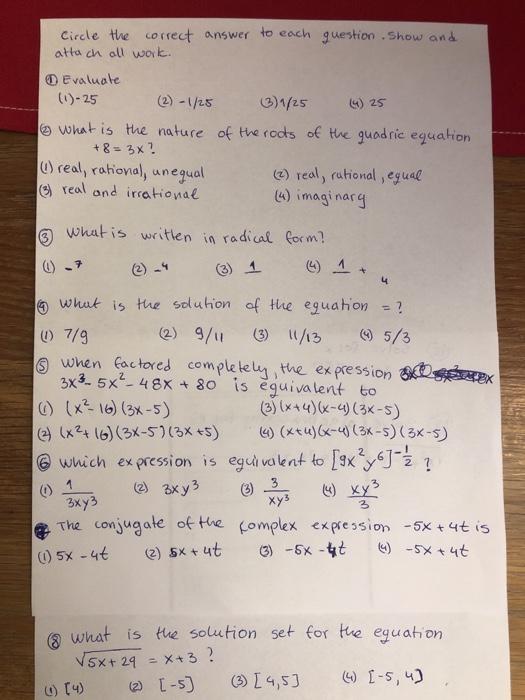 Circle the correct answer to each question. Show and
attach all work.
① Evaluate
(1) -25 (2) -1/25 (3) 1/25 (4) 25
② what is the nature of the roots of the quadric equation
+8 = 3x?
(1) real, rational, unequal (2) real, rational, equal
(3) real and irrational (4) imaginary
③ What is written in radical form?
(1) -7 (2) -4 (3) 1 (4) 1 +
4
④ what is the solution of the equation = ?
(1) 7/9 (2) 9/11 (3) 11/13 (4) 5/3
⑤ when factored completely, the expression
3x³- 5x² - 48x + 80 is equivalent to
(1) (x²- 16) (3x-5) (3) (x+4)(x-4)(3x-5)
(2) (x²+ 16)(3x-5)(3x+5) (4) (x+4)(x-4)(3x-5)(3x-5)
⑥ which expression is equivalent to [9x²y⁶]-½ ?
(1) 1/3xy3 (2) 3xy3 (3) 3/xy3 (4) xy3/3
The conjugate of the complex expression -5x + 4t is
(1) 5x - 4t (2) 5x + 4t (3) -5x -4t (4) -5x + 4t
⑧ what is the solution set for the equation
√5x+29 = x+3 ?
(1) [4) (2) [-5] (3) [4,5] (4) [-5, 4)